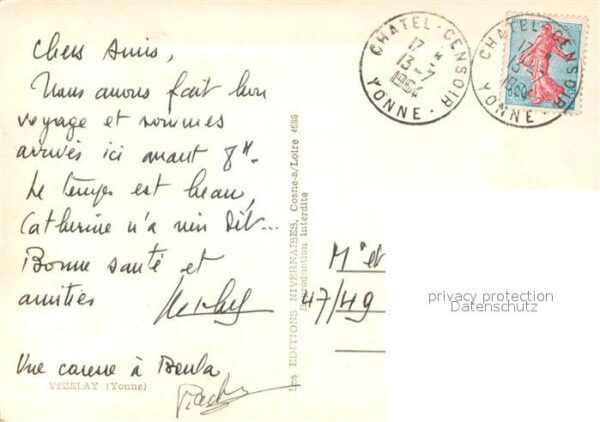 Chers Amis,
Nous avons fait bon
voyage et sommes
arrivés ici avant 8H.
Le temps est beau,
Catherine n'a rien dit...
Bonne santé et
amitiés
Une caresse à Beula
VEZELAY (Yonne)
Les EDITIONS NIVERNAISES, Cosne-s/Loire 4686
Reproduction interdite
CHATEL-CENSOIR
17 H
13-7
1964
YONNE
CHATEL-CENSOIR
17 H
13-7
YONNE
M et
47/49
privacy protection
Datenschutz